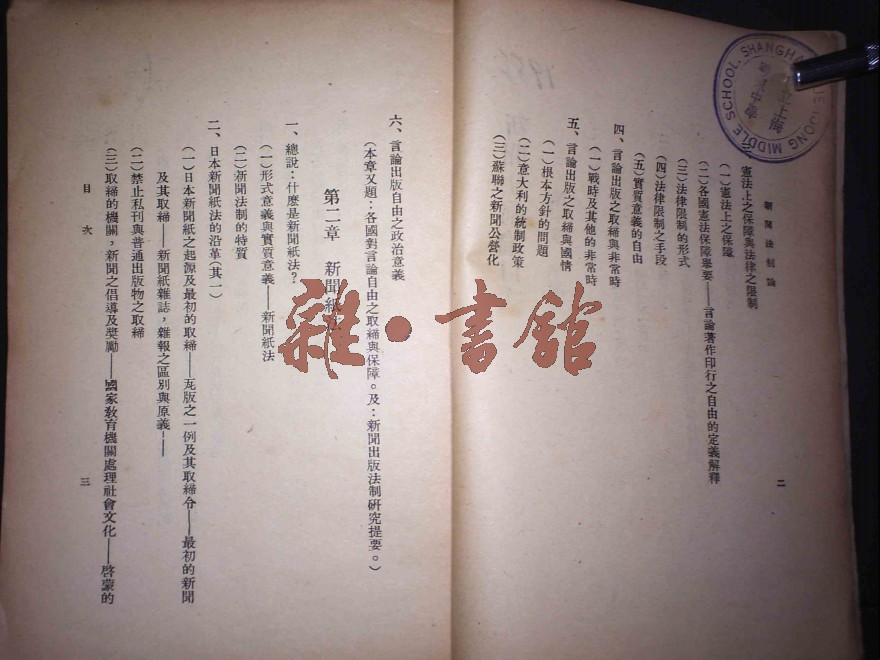 新聞法制論
憲法上之保障與法律之限制
(一)憲法上之保障
(二)各國憲法保障舉要——言論著作印行之自由的定義解釋
(三)法律限制的形式
(四)法律限制之手段
(五)實質意義的自由
四、言論出版之取締與非常時
(一)戰時及其他的非常時
五、言論出版之取締與國情
(一)根本方針的問題
(二)意大利的統制政策
(三)蘇聯之新聞公營化
二
六、言論出版自由之政治意義
(本章又題:各國對言論自由之取締與保障。及:新聞出版法制研究提要。)
第二章 新聞紙法
一、總說:什麼是新聞紙法?
(一)形式意義與實質意義——新聞紙法
(二)新聞法制的特質
二、日本新聞紙法的沿革(其一)
(一)日本新聞紙之起源及最初的取締——瓦版之一例及其取締令——最初的新聞
及其取締——新聞紙雜誌,雜報之區別與原義——
(二)禁止私刊與普通出版物之取締
(三)取締的機關,新聞之倡導及獎勵——國家教育機關處理社會文化——啓蒙的
目次
三
雜·書館
SCHOOL. SHANGHA
MIDDLE